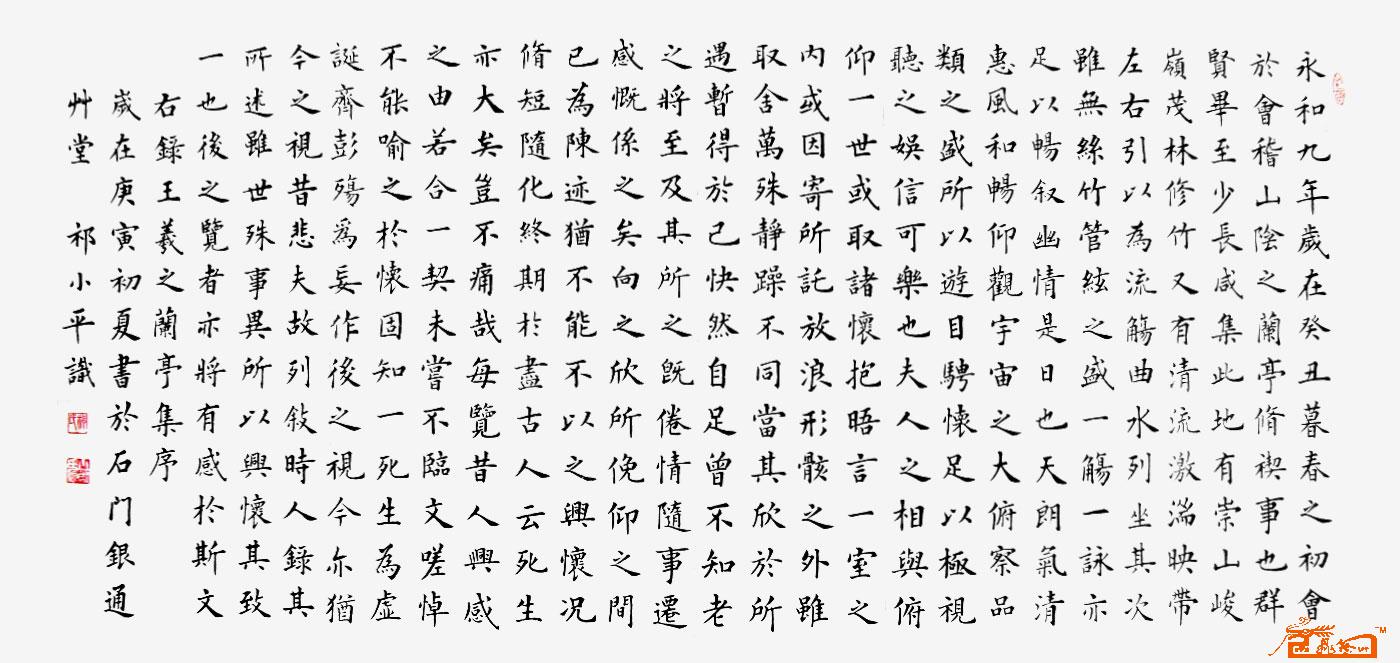 永和九年歲在癸丑暮春之初會
於會稽山陰之蘭亭脩禊事也群
賢畢至少長咸集此地有崇山峻
嶺茂林修竹又有清流激湍映帶
左右引以為流觴曲水列坐其次
雖無絲竹管絃之盛一觴一詠亦
足以暢叙幽情是日也天朗氣清
惠風和暢仰觀宇宙之大俯察品
類之盛所以遊目騁懷足以極視
聽之娛信可樂也夫人之相與俯
仰一世或取諸懷抱晤言一室之
内或因寄所託放浪形骸之外雖
取舍萬殊靜躁不同當其欣於所
遇暫得於己快然自足曾不知老
之將至及其所之既倦情隨事遷
感慨係之矣向之欣所俛仰之間
已為陳迹猶不能不以之興懷況
脩短隨化終期於盡古人云死生
亦大矣豈不痛哉每覽昔人興感
之由若合一契未嘗不臨文嗟悼
不能喻之於懷固知一死生為虛
誕齊彭殤爲妄作後之視今亦猶
今之視昔悲夫故列敍時人錄其
所述雖世殊事異所以興懷其致
一也後之覽者亦將有感於斯文
右錄王羲之蘭亭集序
歲在庚寅初夏書於石門銀通
艸堂 祁小平識